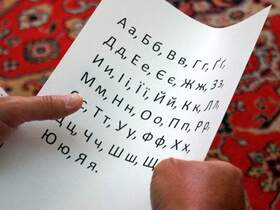 Аа, Бб, Вв, Гг, Ґґ,
Дд, Ее, Єє, Жж, Зз,
Ии, Іі, Її, Йй, Кк, Лл,
Мм, Нн, Оо, Пп, Рр,
Сс, Тт, Уу, Фф, Хх,
Цц, Чч, Шш,
Юю, Яя.